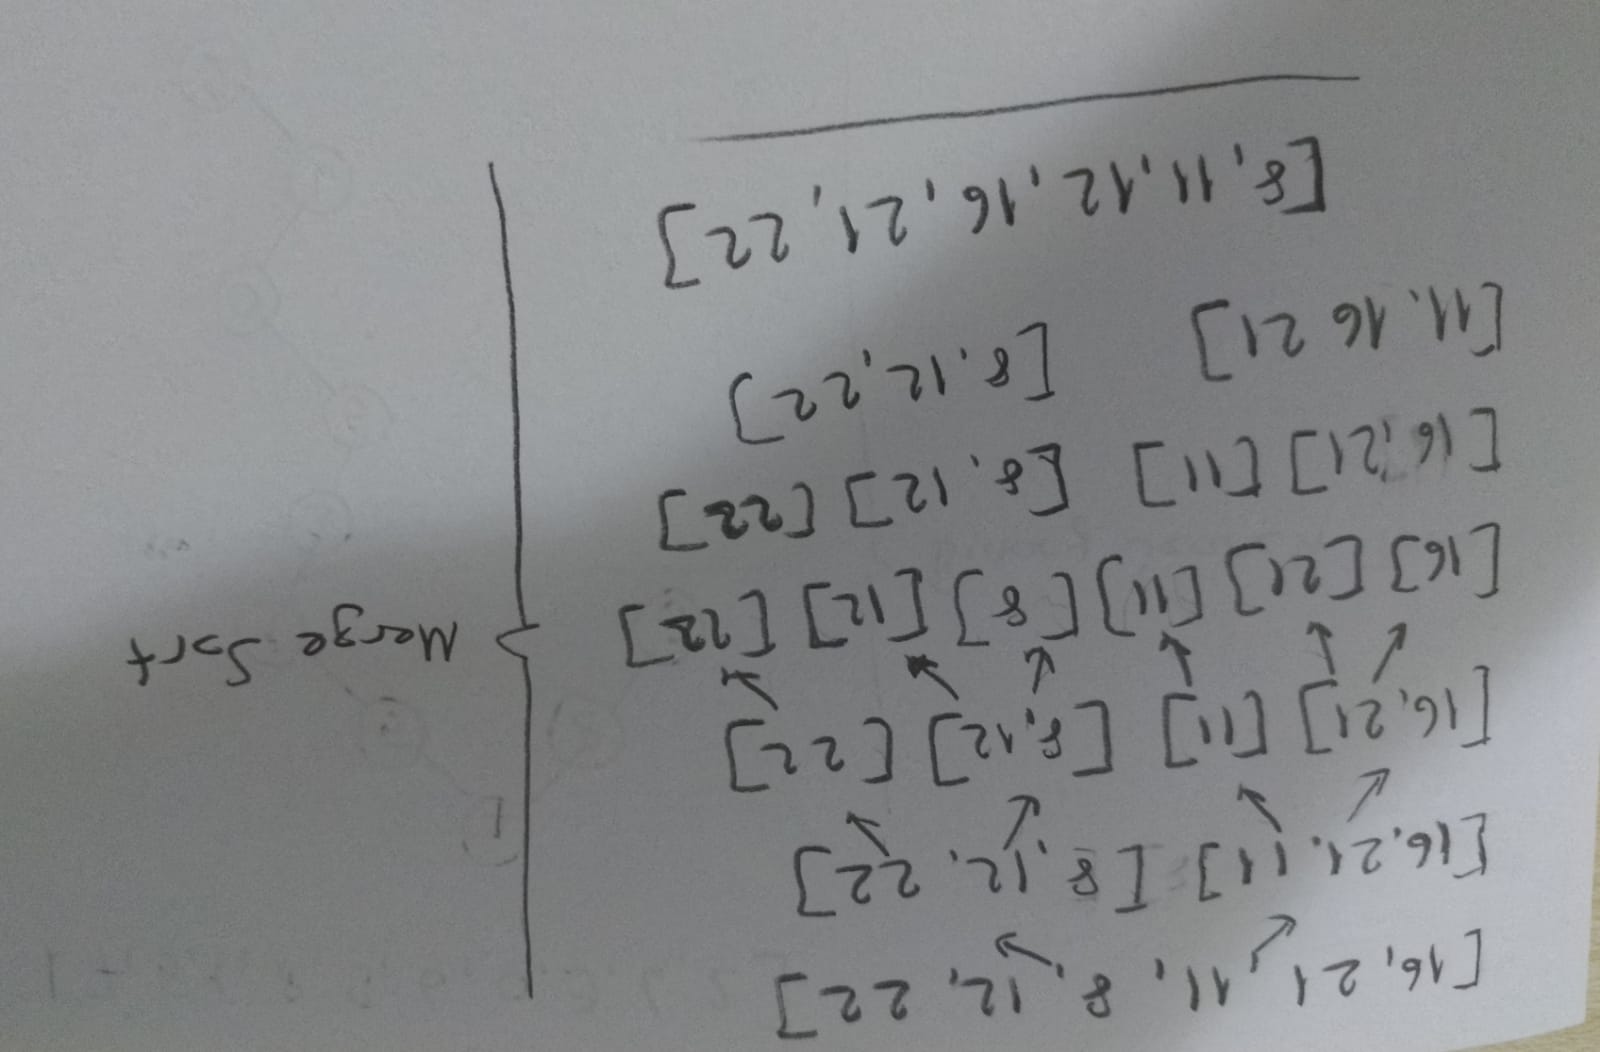 [16, 21, 11, 8, 12, 22]
[16, 21, 11] [8, 12, 22]
[16, 21] [11] [8, 12] [22]
[16] [21] [11] [8] [12] [22]
[16, 21] [11] [8, 12] [22]
[11. 16 21] [8, 12, 22]
[8, 11, 12, 16, 21, 22]
Merge Sort